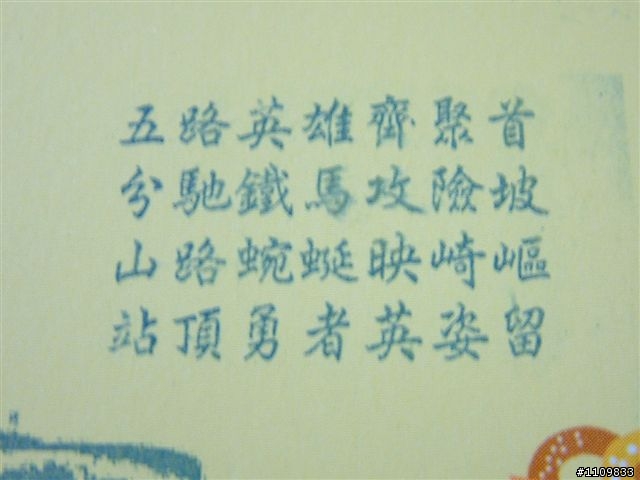 五路英雄齊聚首
分馳鐵馬攻險坡
山路蜿蜒映崎嶇
站頂勇者英姿留
#1109833